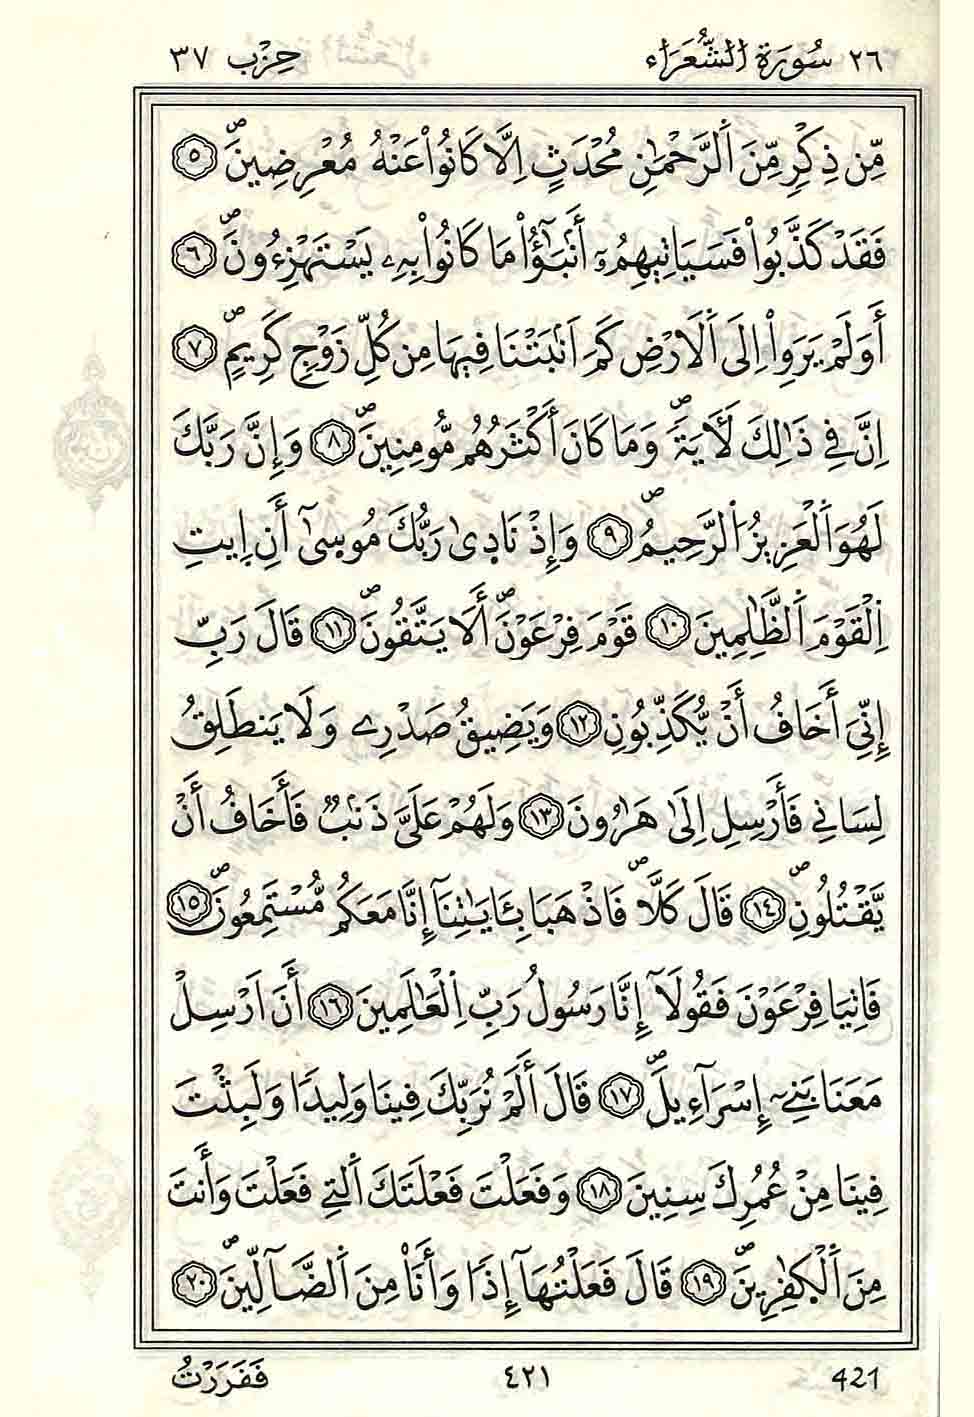 ٢٦ سُورَةُ الشُّعَرَاء حِزْب ٣٧
مِّن ذِكْرٍ مِّنَ اَ۬لرَّحْمَٰنِ مُحْدَثٍ اِلَّا كَانُواْ عَنْهُ مُعْرِضِينَۖ ٥
فَقَدْ كَذَّبُواْ فَسَيَاتِيهِمُۥٓ أَنۢبَٰٓؤُاْ مَا كَانُواْ بِهِۦ يَسْتَهْزِءُونَۖ ٦
أَوَلَمْ يَرَوِاْ اِلَى اَ۬لَارْضِ كَمَ اَنۢبَتْنَا فِيهَا مِن كُلِّ زَوْجٖ كَرِيمٍۖ ٧
اِنَّ فِي ذَٰلِكَ لَأٓيَةٗۖ وَمَا كَانَ أَكْثَرُهُم مُّومِنِينَۖ ٨ وَإِنَّ رَبَّكَ
لَهُوَ اَ۬لْعَزِيزُ اُ۬لرَّحِيمُۖ ٩ وَإِذْ نَادِىٰ رَبُّكَ مُوسِىٰٓ أَنِ اِيتِ
اِ۬لْقَوْمَ اَ۬لظَّٰلِمِينَ ١٠ قَوْمَ فِرْعَوْنَۖ أَلَا يَتَّقُونَۖ ١١ قَالَ رَبِّ
إِنِّيَ أَخَافُ أَنْ يُّكَذِّبُونِ ١٢ وَيَضِيقُ صَدْرِے وَلَا يَنطَلِقُ
لِسَانِي فَأَرْسِلِ اِلَىٰ هَٰرُونَ ١٣ وَلَهُمْ عَلَيَّ ذَنۢبٞ فَأَخَافُ أَنْ
يَّقْتُلُونِۖ ١٤ قَالَ كَلَّاۖ فَاذْهَبَا بِـَٔايَٰتِنَآ إِنَّا مَعَكُم مُّسْتَمِعُونَۖ ١٥
فَاتِيَا فِرْعَوْنَ فَقُولَآ إِنَّا رَسُولُ رَبِّ اِ۬لْعَٰلَمِينَ ١٦ أَنَ اَرْسِلْ
مَعَنَا بَنِےٓ إِسْرَآءِيلَۖ ١٧ قَالَ أَلَمْ نُرَبِّكَ فِينَا وَلِيداٗ وَلَبِثْتَ
فِينَا مِنْ عُمُرِكَ سِنِينَ ١٨ وَفَعَلْتَ فَعْلَتَكَ اَ۬لتِے فَعَلْتَ وَأَنتَ
مِنَ اَ۬لْكٰفِرِينَۖ ١٩ قَالَ فَعَلْتُهَآ إِذاٗ وَأَنَا۠ مِنَ اَ۬لضَّآلِّينَۖ ٢٠
421 ٤٢١ فَفَرَرْتُ